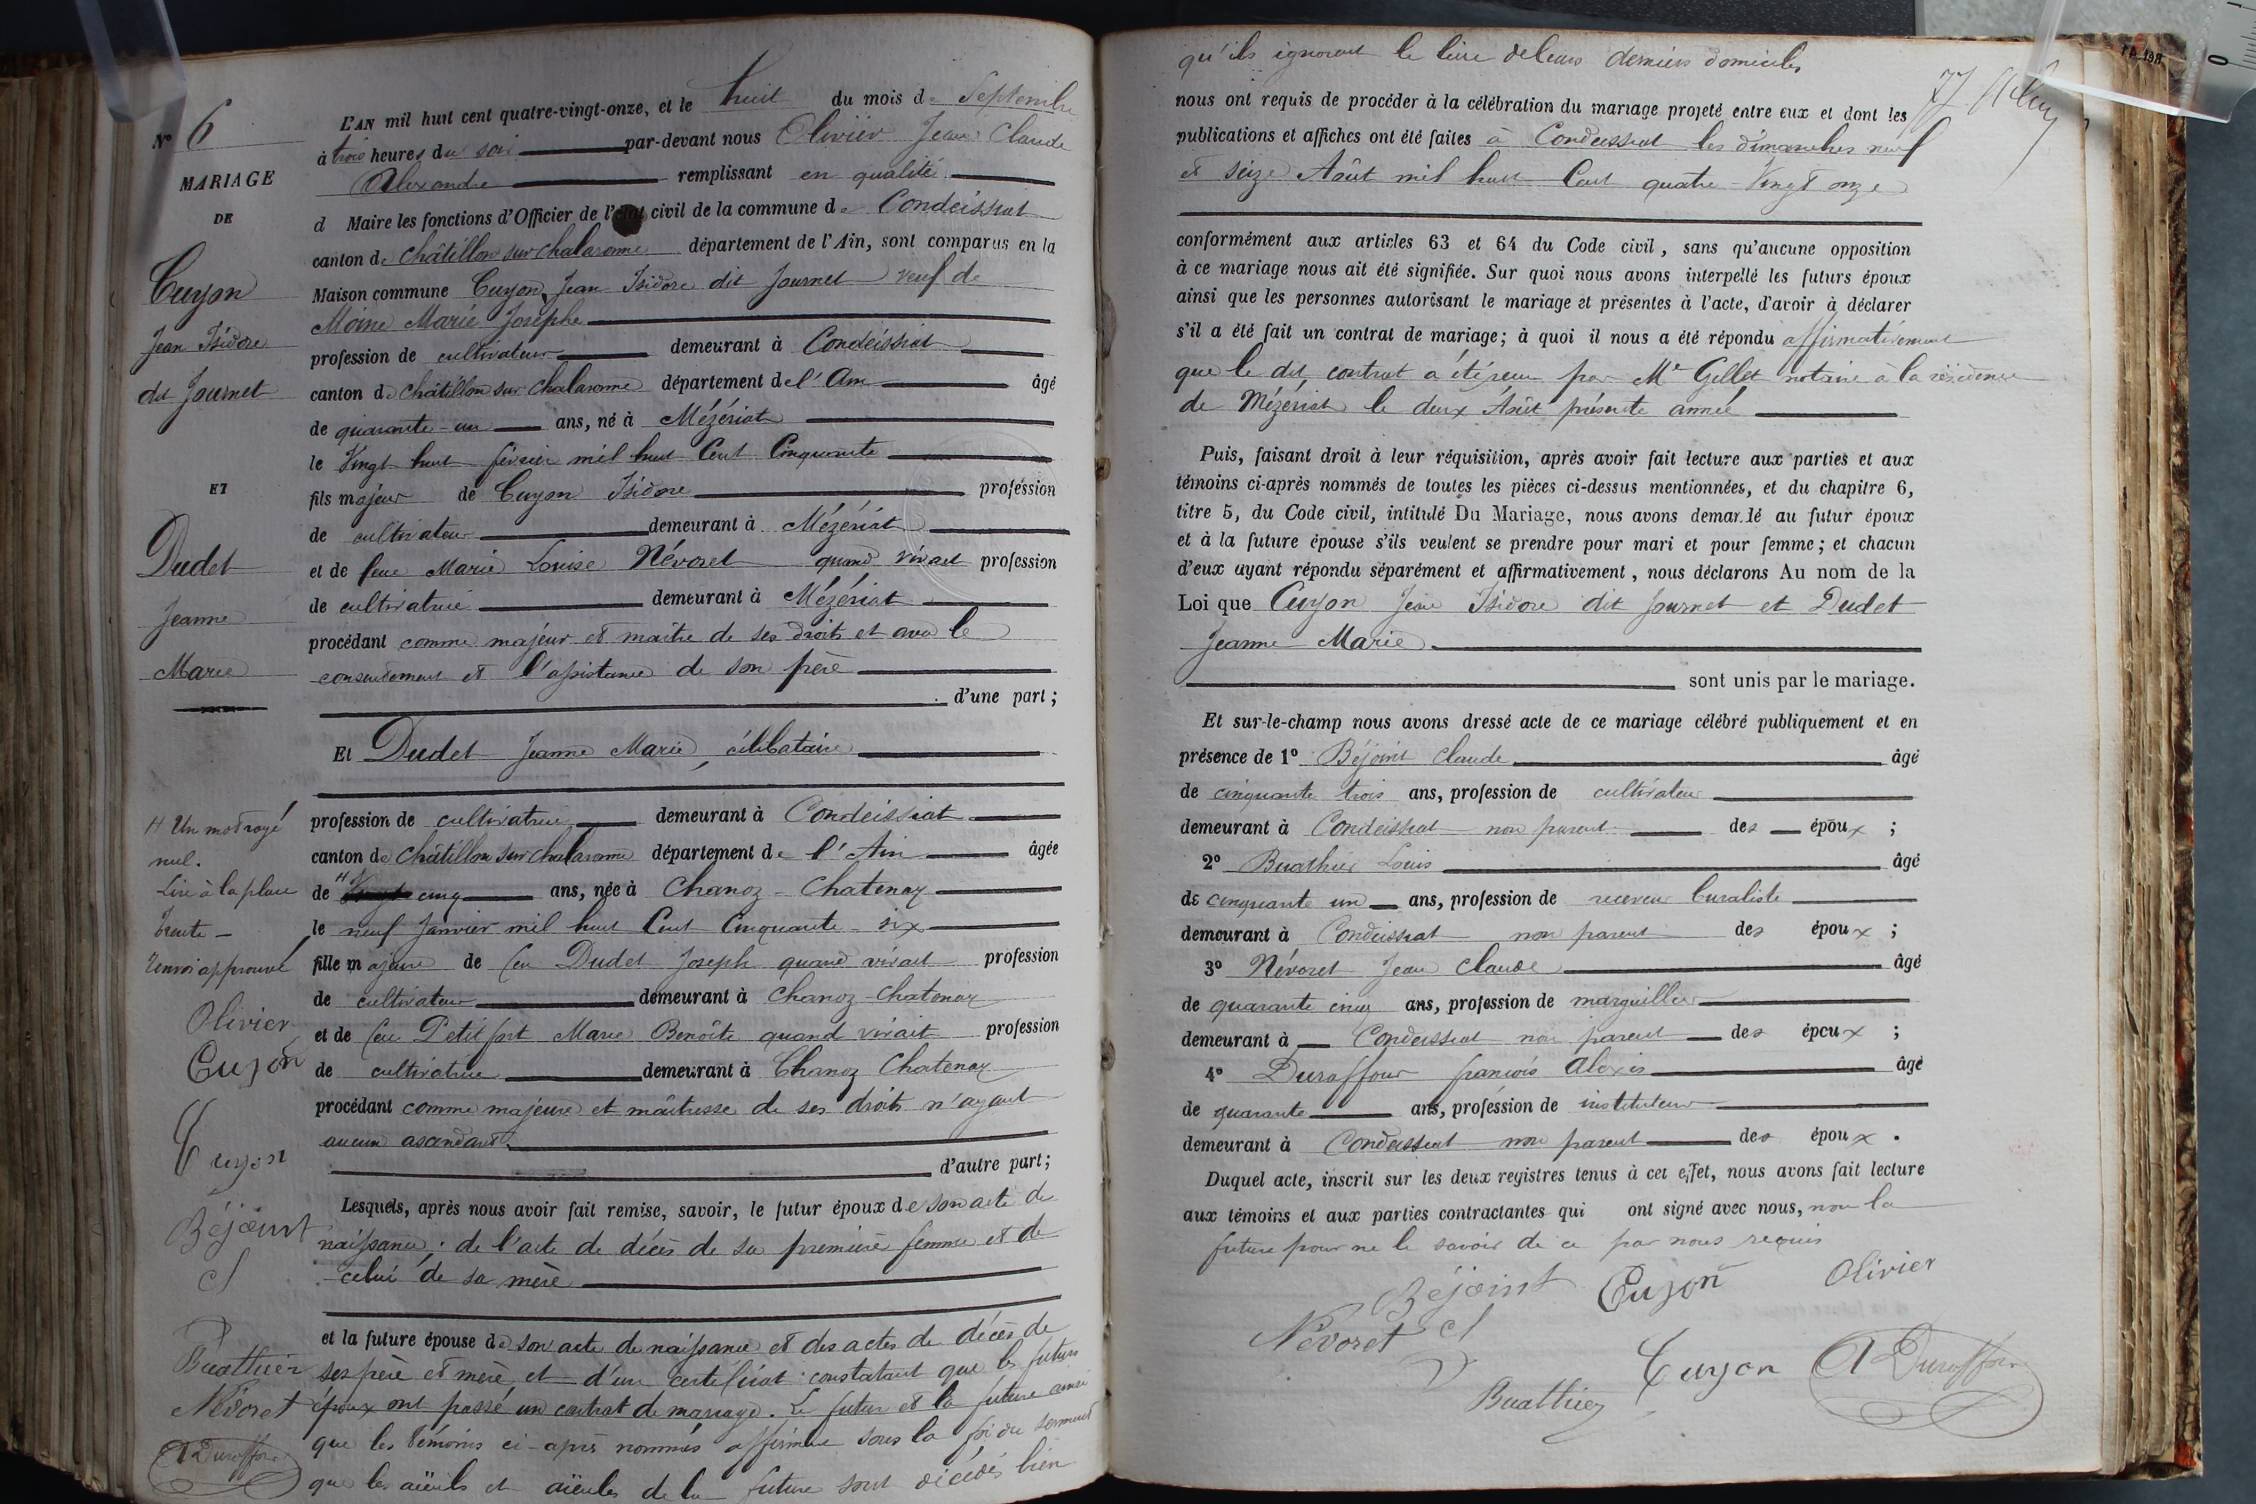 N° 6
MARIAGE
DE
Cuyon
Jean Isidore
dit Journet
ET
Dudet
Jeanne
Marie
H Un mot rayé
nul.
Lire à la place
trente –
Renvoi approuvé
Olivier
Cuyon
Cuyon
Béjoint
cl
Buathier
Névoret
A Duraffour
L'AN mil huit cent quatre-vingt-onze, et le huit du mois de Septembre
à trois heures du soir par-devant nous Olivier Jean Claude
Alexandre remplissant en qualité
d Maire les fonctions d'Officier de l'état civil de la commune de Condeissiat
canton de Châtillon sur Chalaronne département de l'Ain, sont comparus en la
Maison commune Cuyon, Jean Isidore dit Journet veuf de
Moine Marie Josephe
profession de cultivateur demeurant à Condeissiat
canton de Châtillon sur Chalaronne département de l'Ain âgé
de quarante-un ans, né à Mézériat
le Vingt huit février mil huit Cent Cinquante
fils majeur de Cuyon Isidore profession
de cultivateur demeurant à Mézériat
et de feue Marie Louise Névoret quand vivait profession
de cultivatrice demeurant à Mézériat
procédant comme majeur et maître de ses droits et avec le
consentement et l'assistance de son père
d'une part;
Et Dudet Jeanne Marie, célibataire
profession de cultivatrice demeurant à Condeissiat
canton de Châtillon sur Chalaronne département de l'Ain âgée
de H Vingt cinq ans, née à Chanoz-Chatenay
le neuf Janvier mil huit Cent Cinquante-six
fille majeure de feu Dudet Joseph quand vivait profession
de cultivateur demeurant à Chanoz-Chatenay
et de feu Petitfort Marie Benoîte quand vivait profession
de cultivatrice demeurant à Chanoz Chatenay
procédant comme majeure et maîtresse de ses droits n'ayant
aucun ascendant
d'autre part;
Lesquels, après nous avoir fait remise, savoir, le futur époux de son acte de
naissance; de l'acte de décès de sa première femme et de
celui de sa mère
et la future épouse de son acte de naissance et des actes de décès de
ses père et mère, et d'un certificat constatant que les futurs
époux ont passé un contrat de mariage. Le futur et la future ainsi
que les témoins ci-après nommés affirment sous la foi du serment
que les aïeuls et aïeules de la future sont décédés bien
qu'ils ignorent le lieu de leurs derniers domiciles
nous ont requis de procéder à la célébration du mariage projeté entre eux et dont les
publications et affiches ont été faites à Condeissiat les dimanches neuf
et seize Août mil huit Cent quatre-Vingt onze
conformément aux articles 63 et 64 du Code civil, sans qu'aucune opposition
à ce mariage nous ait été signifiée. Sur quoi nous avons interpellé les futurs époux
ainsi que les personnes autorisant le mariage et présentes à l'acte, d'avoir à déclarer
s'il a été fait un contrat de mariage; à quoi il nous a été répondu affirmativement
que le dit contrat a été reçu par Me Gillet notaire à la résidence
de Mézériat le deux Août présente année
Puis, faisant droit à leur réquisition, après avoir fait lecture aux parties et aux
témoins ci-après nommés de toutes les pièces ci-dessus mentionnées, et du chapitre 6,
titre 5, du Code civil, intitulé Du Mariage, nous avons demandé au futur époux
et à la future épouse s'ils veulent se prendre pour mari et pour femme; et chacun
d'eux ayant répondu séparément et affirmativement, nous déclarons Au nom de la
Loi que Cuyon Jean Isidore dit Journet et Dudet
Jeanne Marie
sont unis par le mariage.
Et sur-le-champ nous avons dressé acte de ce mariage célébré publiquement et en
présence de 1° Béjoint Claude âgé
de cinquante trois ans, profession de cultivateur
demeurant à Condeissiat non parent des époux;
2° Buathier Louis âgé
de cinquante un ans, profession de receveur buraliste
demeurant à Condeissiat non parent des époux;
3° Névoret Jean Claude âgé
de quarante cinq ans, profession de marguillier
demeurant à Condeissiat non parent des époux;
4° Duraffour françois Alexis âgé
de quarante ans, profession de instituteur
demeurant à Condeissiat non parent des époux.
Duquel acte, inscrit sur les deux registres tenus à cet effet, nous avons fait lecture
aux témoins et aux parties contractantes qui ont signé avec nous, non la
future pour ne le savoir de ce par nous requis
Béjoint cl Cuyon Olivier
Névoret
Buathier Cuyon A Duraffour